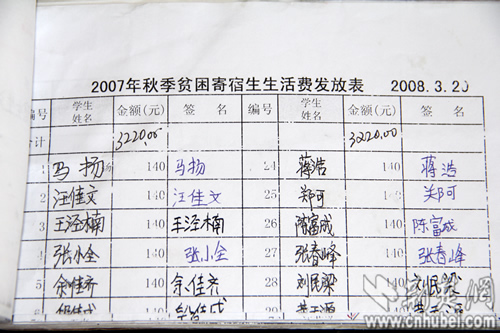 2007年秋季贫困寄宿生生活费发放表 2008.3.20
编号 学生姓名 金额(元) 签名 编号 学生姓名 金额(元) 签名
合计 3220.00 3220.00
1 马扬 140 马扬 24 蒋浩 140 蒋浩
2 汪佳文 140 汪佳文 25 郑可 140 郑可
3 王泾楠 140 王泾楠 26 陈富成 140 陈富成
4 张小全 140 张小全 27 张春峰 140 张春峰
5 余佳齐 140 余佳齐 28 刘民梁 140 刘民梁
www.cnhubei.com